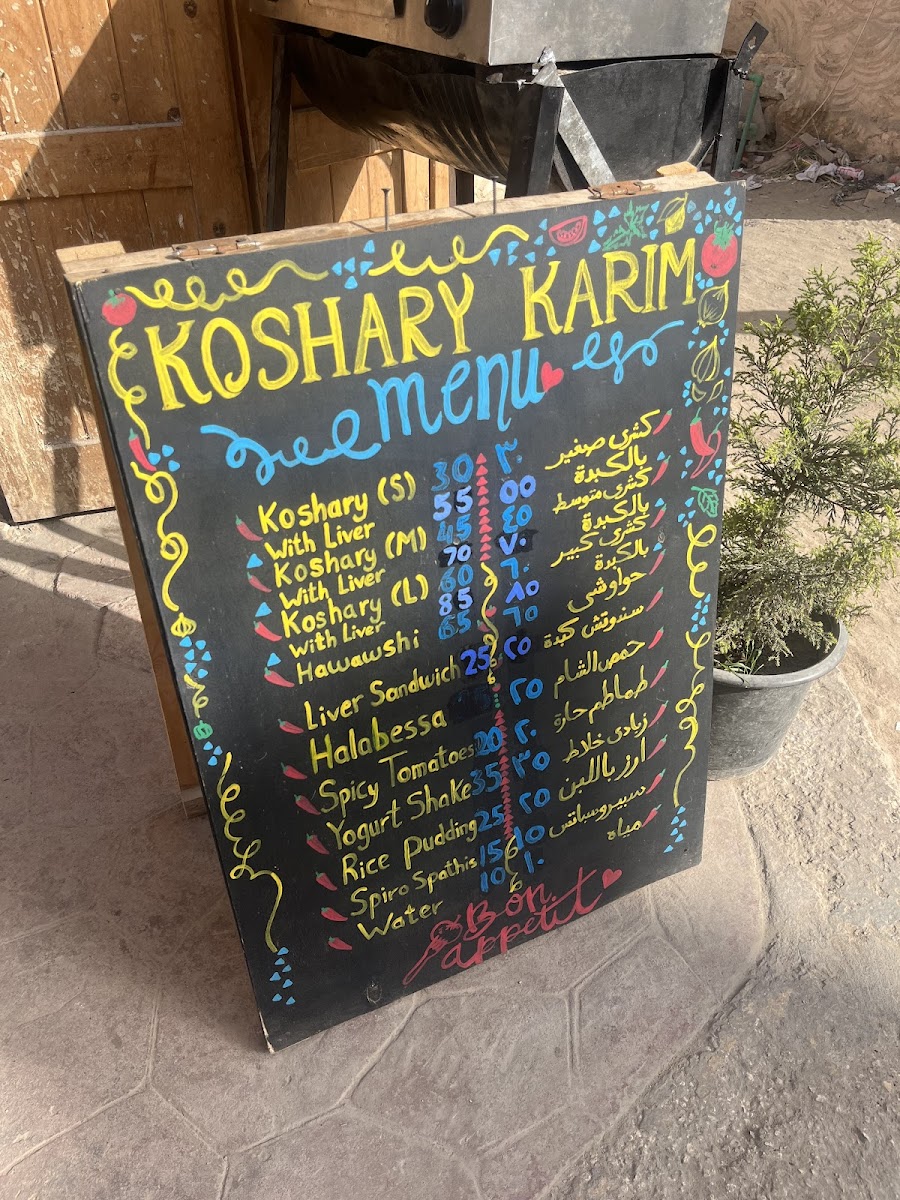 KOSHARY KARIM
menu
Koshary (S) 30 ٣٠ كشرى صغير
With Liver 55 ٥٥ بالكبدة
Koshary (M) 45 ٤٥ كشرى متوسط
With Liver 70 ٧٠ بالكبدة
Koshary (L) 60 ٦٠ كشرى كبير
With Liver 85 ٨٥ بالكبدة
Hawawshi 65 ٦٥ حواوشى
Liver Sandwich 25 ٢٥ سندوتش كبدة
Halabessa ٢٥ حمص الشام
Spicy Tomatoes 20 ٢٠ طماطم حارة
Yogurt Shake 35 ٣٥ زبادى خلاط
Rice Pudding 25 ٢٥ ارز باللبن
Spiro Spathis 15 ١٥ سبيروسباتس
Water 10 ١٠ مياه
Bon
appetit